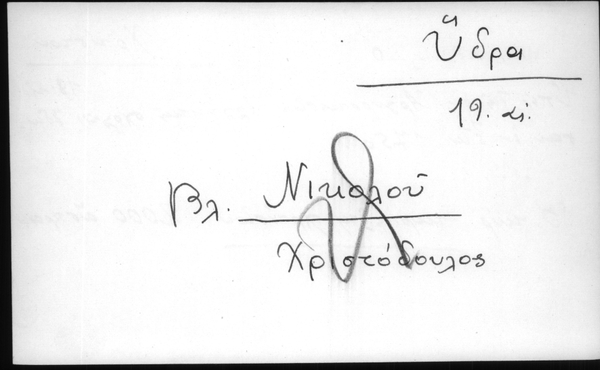 Ὕδρα
19. αἰ.
Βλ. Νικολοῦ
Χριστόδουλος